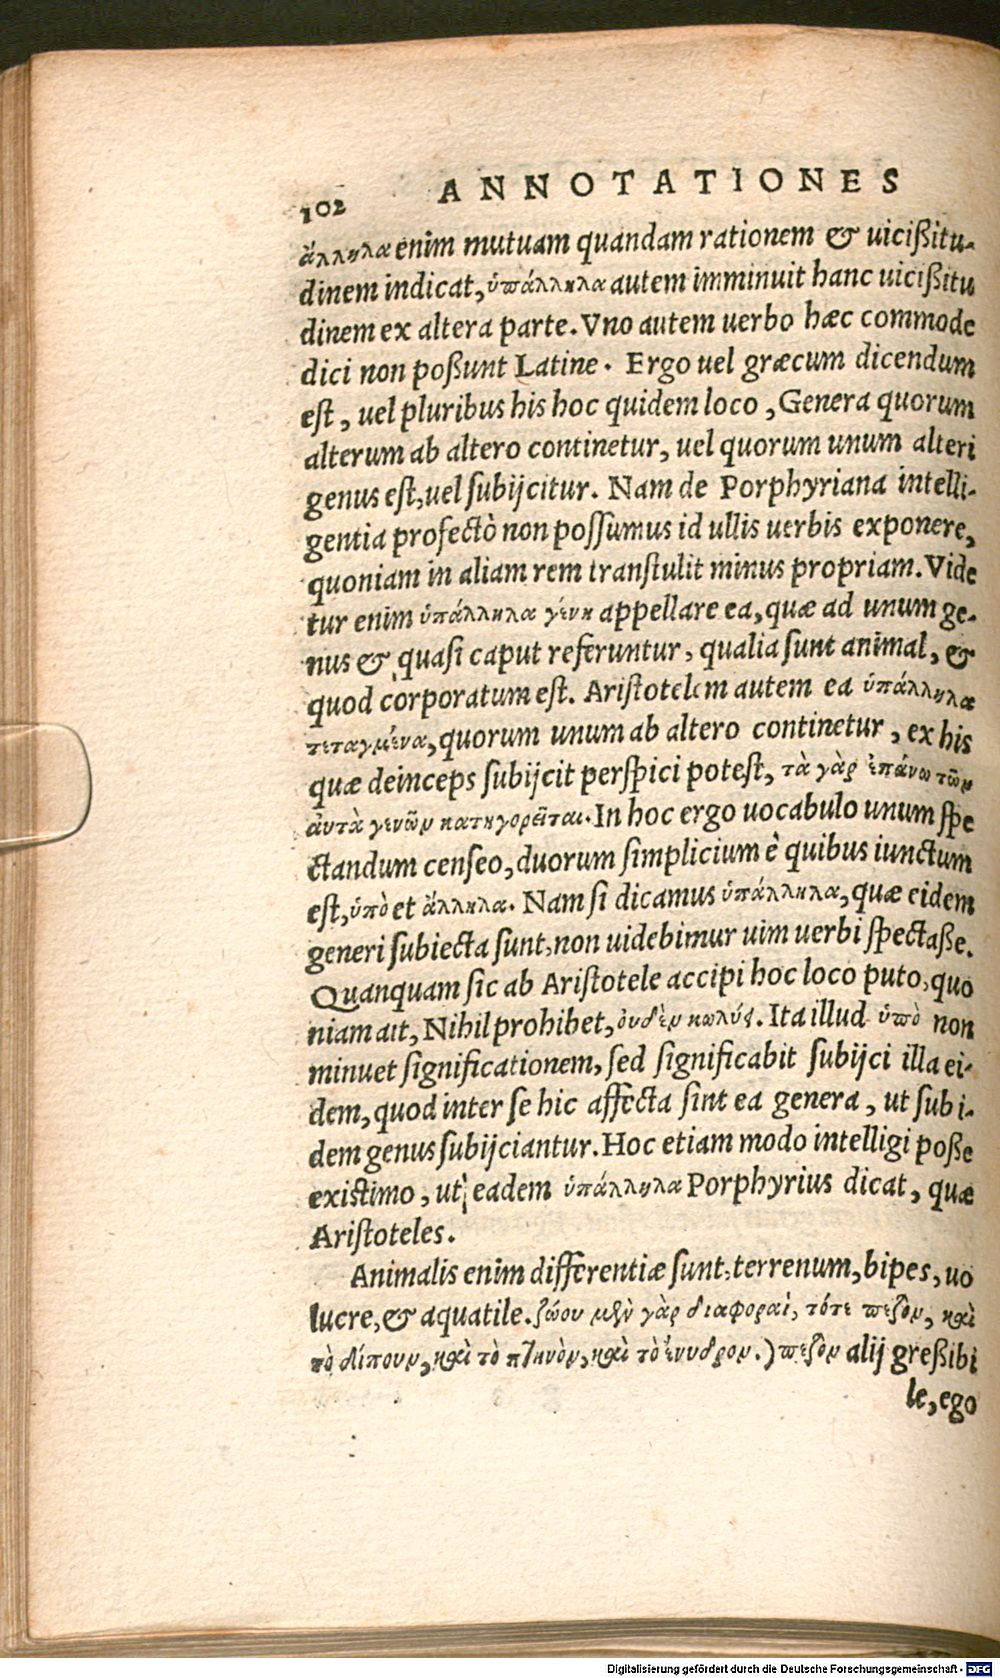 102 ANNOTATIONES
ἄλληλα enim mutuam quandam rationem & uicißitu-
dinem indicat, ὑπάλληλα autem imminuit hanc uicißitu
dinem ex altera parte. Vno autem uerbo hæc commode
dici non poßunt Latine. Ergo uel græcum dicendum
est, uel pluribus his hoc quidem loco, Genera quorum
alterum ab altero continetur, uel quorum unum alteri
genus est, uel subijcitur. Nam de Porphyriana intelli-
gentia profectò non possumus id ullis uerbis exponere,
quoniam in aliam rem transtulit minus propriam. Vide
tur enim ὑπάλληλα γένη appellare ea, quæ ad unum ge-
nus & quasi caput referuntur, qualia sunt animal, &
quod corporatum est. Aristotelem autem ea ὑπάλληλα
τεταγμένα, quorum unum ab altero continetur, ex his
quæ deinceps subijcit perspici potest, τὰ γὰρ ἐπάνω τῶν
αὐτὰ γενῶν κατηγορεῖται. In hoc ergo uocabulo unum spe
ctandum censeo, duorum simplicium è quibus iunctum
est, ὑπὸ et ἄλληλα. Nam si dicamus ὑπάλληλα, quæ eidem
generi subiecta sunt, non uidebimur uim uerbi spectaße.
Quanquam sic ab Aristotele accipi hoc loco puto, quo
niam ait, Nihil prohibet, οὐδὲν κωλύει. Ita illud ὑπὸ non
minuet significationem, sed significabit subijci illa ei-
dem, quod inter se hic affecta sint ea genera, ut sub i-
dem genus subijciantur. Hoc etiam modo intelligi poße
existimo, ut eadem ὑπάλληλα Porphyrius dicat, quæ
Aristoteles.
Animalis enim differentiæ sunt, terrenum, bipes, uo
lucre, & aquatile. ζώου μὲν γὰρ διαφοραὶ, τότε πεζὸν, καὶ
τὸ δίπουν, καὶ τὸ πτηνὸν, καὶ τὸ ἔνυδρον.) πεζὸν alij greßibi
le, ego
Digitalisierung gefördert durch die Deutsche Forschungsgemeinschaft - DFG